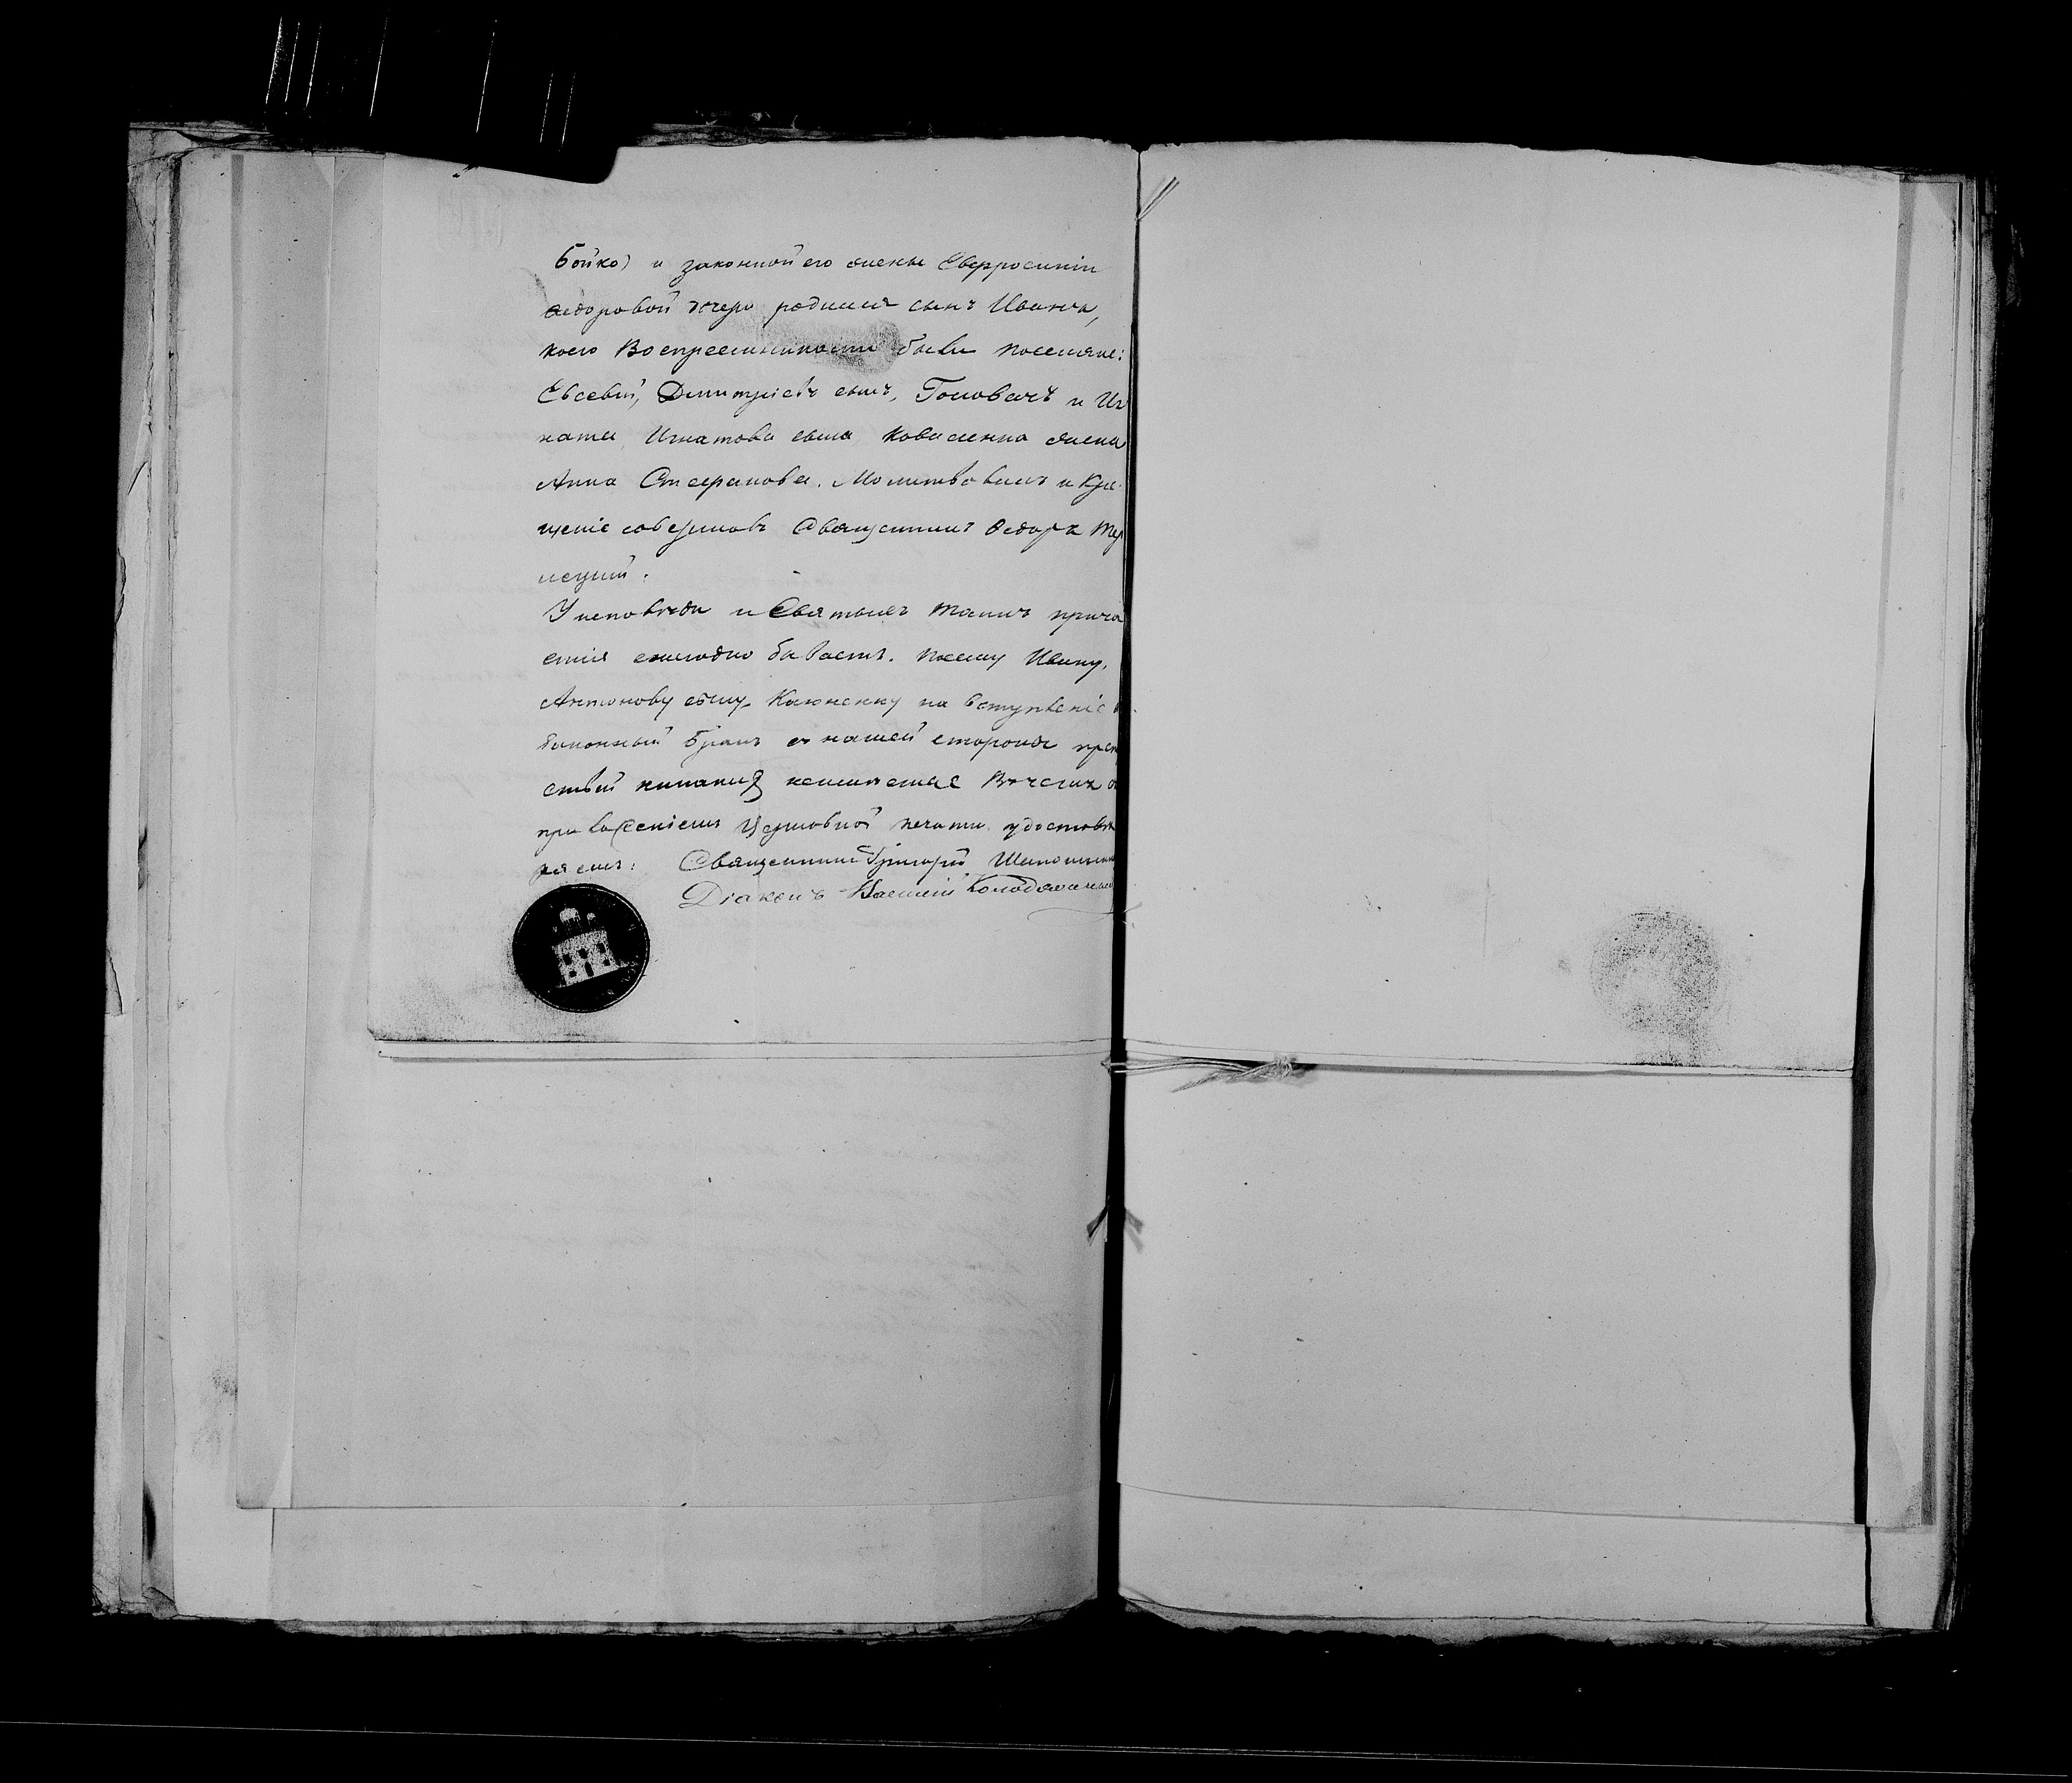 Бойко) и законной его жены Евфросиніи
Ѳедоровой дочери родился сынъ Иванъ,
коего Воспреемниками были поселяне:
Евсевій, Димитріевъ сынъ, Головачъ и Иг
ната, Игнатова сына Коваленка жена
Анна Стефанова. Молитвовалъ и Кре-
щеніе совершалъ Священникъ Ѳедоръ
У исповѣди и Святыхъ Таинъ прича
стія ежегодно бываетъ. Посему Ивану,
Антонову сыну, на вступленіе
законный бракъ съ нашей стороны преп
ствій никакихъ неимѣется Въ чемъ
приложеніемъ Церковной печати удостовѣ
ряемъ: Священникъ Григорій
Діаконъ Василій